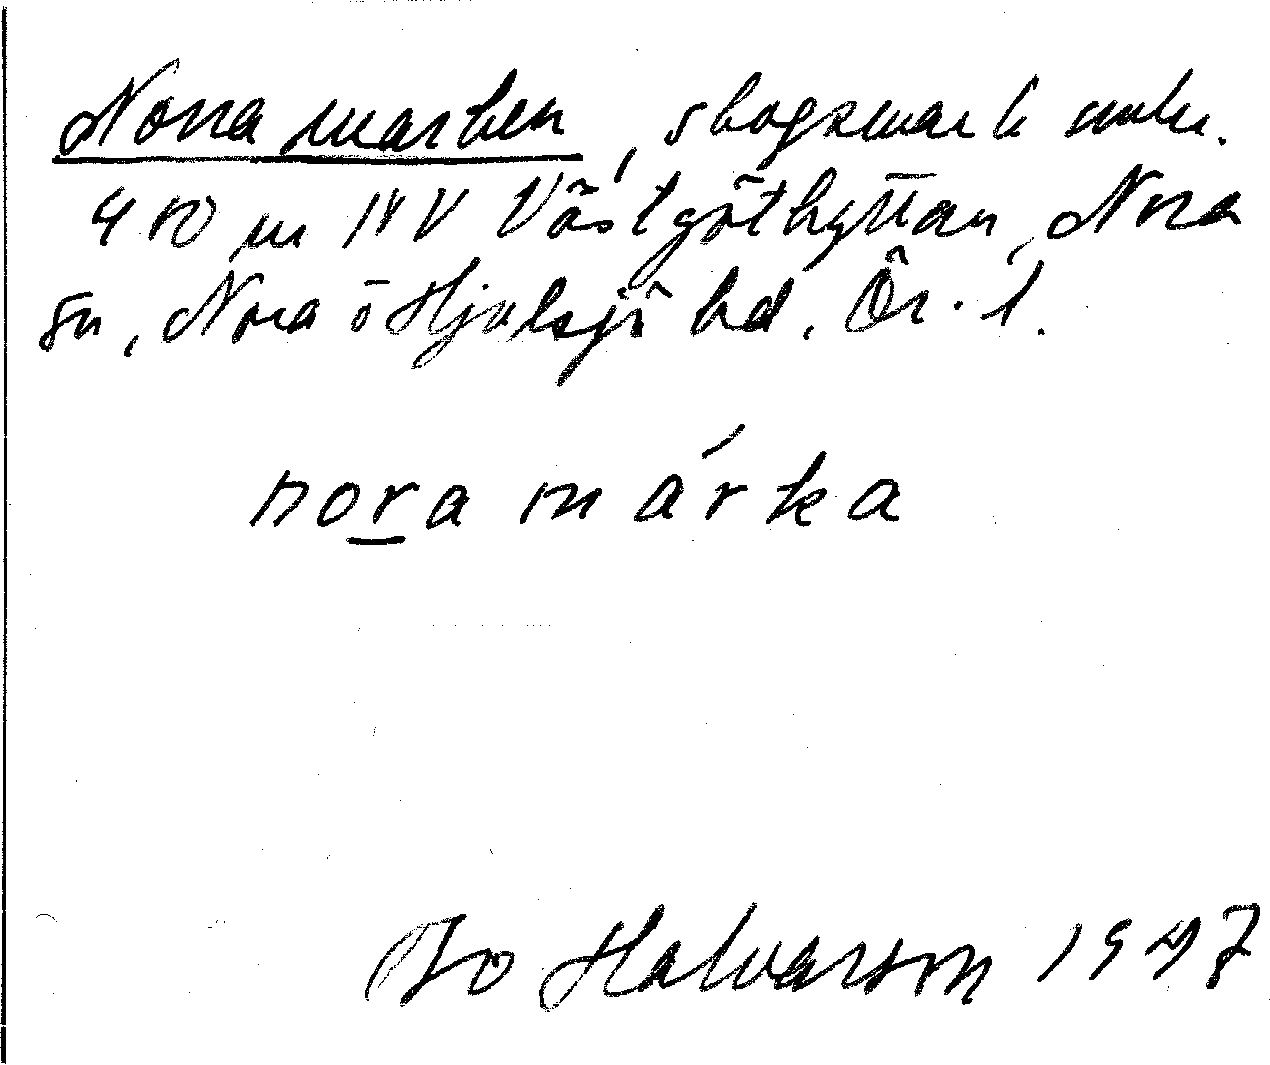 Nora marken, skogsmark omkr.
400 m NV Västgöthyttan, Nora
sn, Nora o Hjulsjö bd. Ör. l.
nora márka
Bo Halvarson 1947